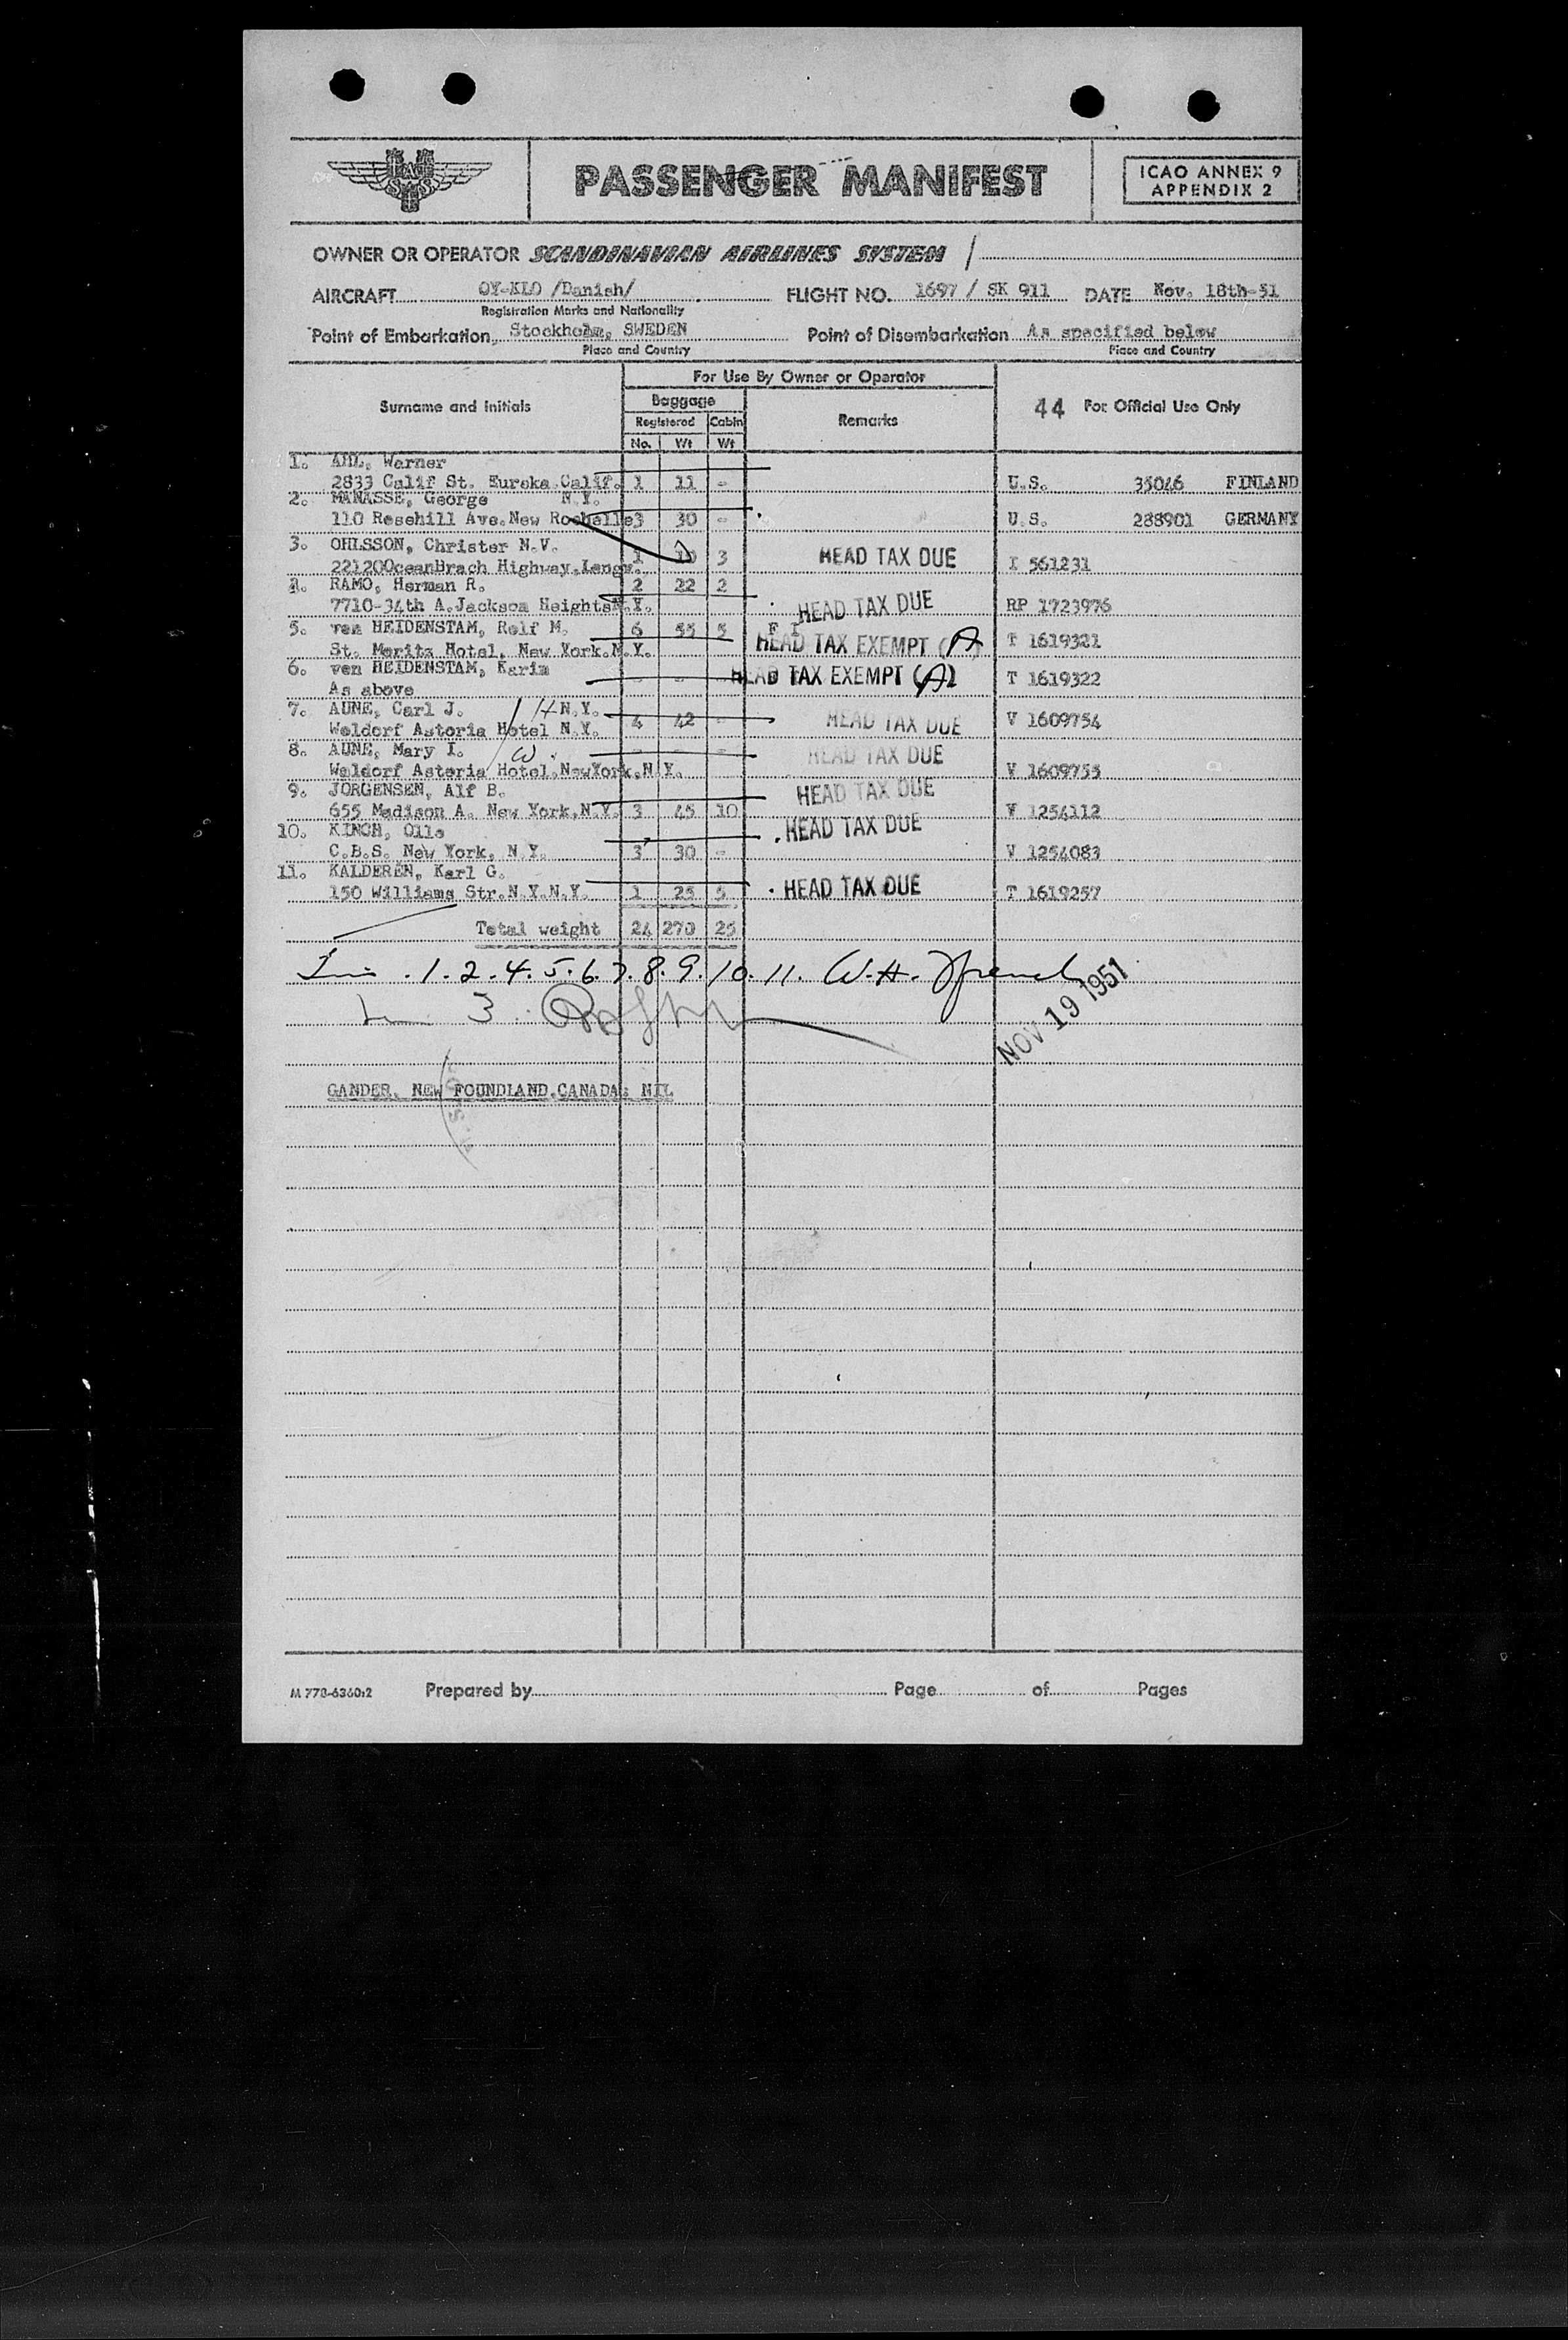 PASSENGER MANIFEST
ICAO ANNEX 9
APPENDIX 2
OWNER OR OPERATOR SCANDINAVIAN AIRLINES SYSTEM
AIRCRAFT OY-KLO /Danish/ FLIGHT NO. 1697 / SK 911 DATE Nov. 18th-51
Registration Marks and Nationality
Point of Embarkation, Stockholm, SWEDEN Point of Disembarkation As specified below
Place and Country Place and Country
For Use By Owner or Operator
Surname and Initials Baggage Remarks 44 For Official Use Only
Registered Cabin
No. Wt Wt
1. AHL, Warner
2833 Calif St. Eureka Calif. 1 11 - U.S. 35046 FINLAND
2. MANASSE, George N.Y.
110 Rosehill Ave. New Rochelle 3 30 - U.S. 288901 GERMANY
3. OHLSSON, Christer N.V. 1 10 3 HEAD TAX DUE I 561231
221200ceanBrach Highway.Longv.
4. RAMO, Herman R. 2 22 2
7710-34th A.Jackson Heights N.Y. HEAD TAX DUE RP 1723976
5. von HEIDENSTAM, Rolf M. 6 55 5 F I
St. Moritz Hotel, New York.N.Y. HEAD TAX EXEMPT (A) T 1619321
6. von HEIDENSTAM, Karin - - - HEAD TAX EXEMPT (A) T 1619322
As above
7. AUNE, Carl J. H N.Y.
Waldorf Astoria Hotel N.Y. 4 42 - HEAD TAX DUE V 1609754
8. AUNE, Mary I. W - - - HEAD TAX DUE
Waldorf Astoria Hotel.NewYork.N.Y. V 1609755
9. JORGENSEN, Alf B. HEAD TAX DUE
655 Madison A. New York,N.Y. 3 45 10 V 1254112
10. KINCH, Olle HEAD TAX DUE
C.B.S. New York, N.Y. 3 30 - V 1254083
11. KALDEREN, Karl G.
150 Williams Str.N.Y.N.Y. 1 25 5 HEAD TAX DUE T 1619257
Total weight 24 270 25
.1.2.4.5.6.7.8.9.10.11. W.H. French
3
NOV 19 1951
GANDER, NEW FOUNDLAND.CANADA: NIL
M 778-6360:2 Prepared by Page of Pages